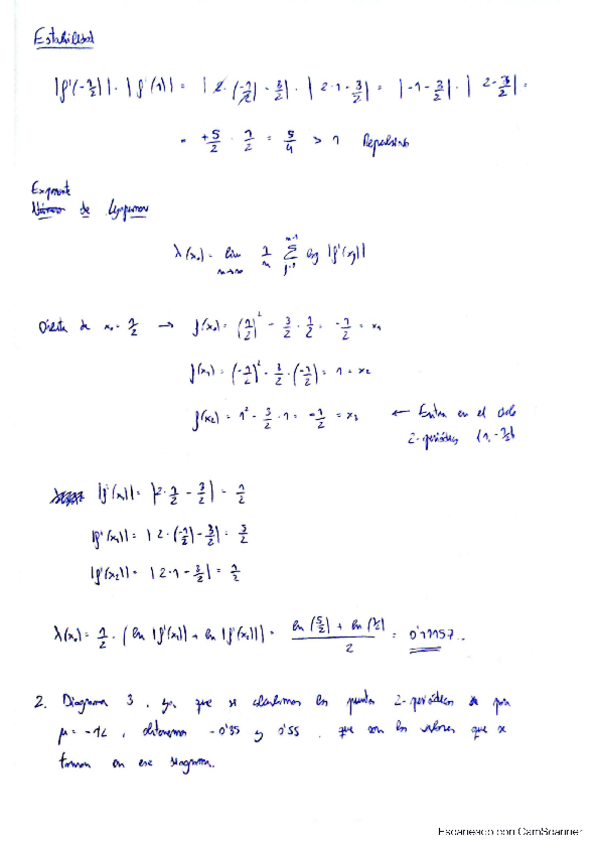 Estabilidad
|f'(-1/2)| · |f'(1)| = | 2 · (-1/2) - 3/2 | · | 2·1 - 3/2 | = |-1 - 3/2| · | 2 - 3/2 | =
= +5/2 · 1/2 = 5/4 > 1 Repulsivo
Exponente
de Lyapunov
λ(x₀) = lim n→∞ 1/n Σ log |f'(xj)|
Órbita de x₀ = 1/2 → f(x₀) = (1/2)² - 3/2 · 1/2 = -1/2 = x₁
f(x₁) = (-1/2)² - 3/2 · (-1/2) = 1 = x₂
f(x₂) = 1² - 3/2 · 1 = -1/2 = x₃ ← Entra en el ciclo
2-periódico {1, -1/2}
|f'(x₀)| = |2 · 1/2 - 3/2| = 1/2
|f'(x₁)| = | 2 · (-1/2) - 3/2 | = 5/2
|f'(x₂)| = | 2 · 1 - 3/2 | = 1/2
λ(x₀) = 1/2 · (ln |f'(x₁)| + ln |f'(x₂)|) = ln (5/2) + ln (1/2) / 2 = 0'11157..
2. Diagrama 3, ya que si calculamos los puntos 2-periódicos para
μ = , obtenemos -0'35 y 0'55, que son los valores que se
toman en ese diagrama.
Escaneado con CamScanner